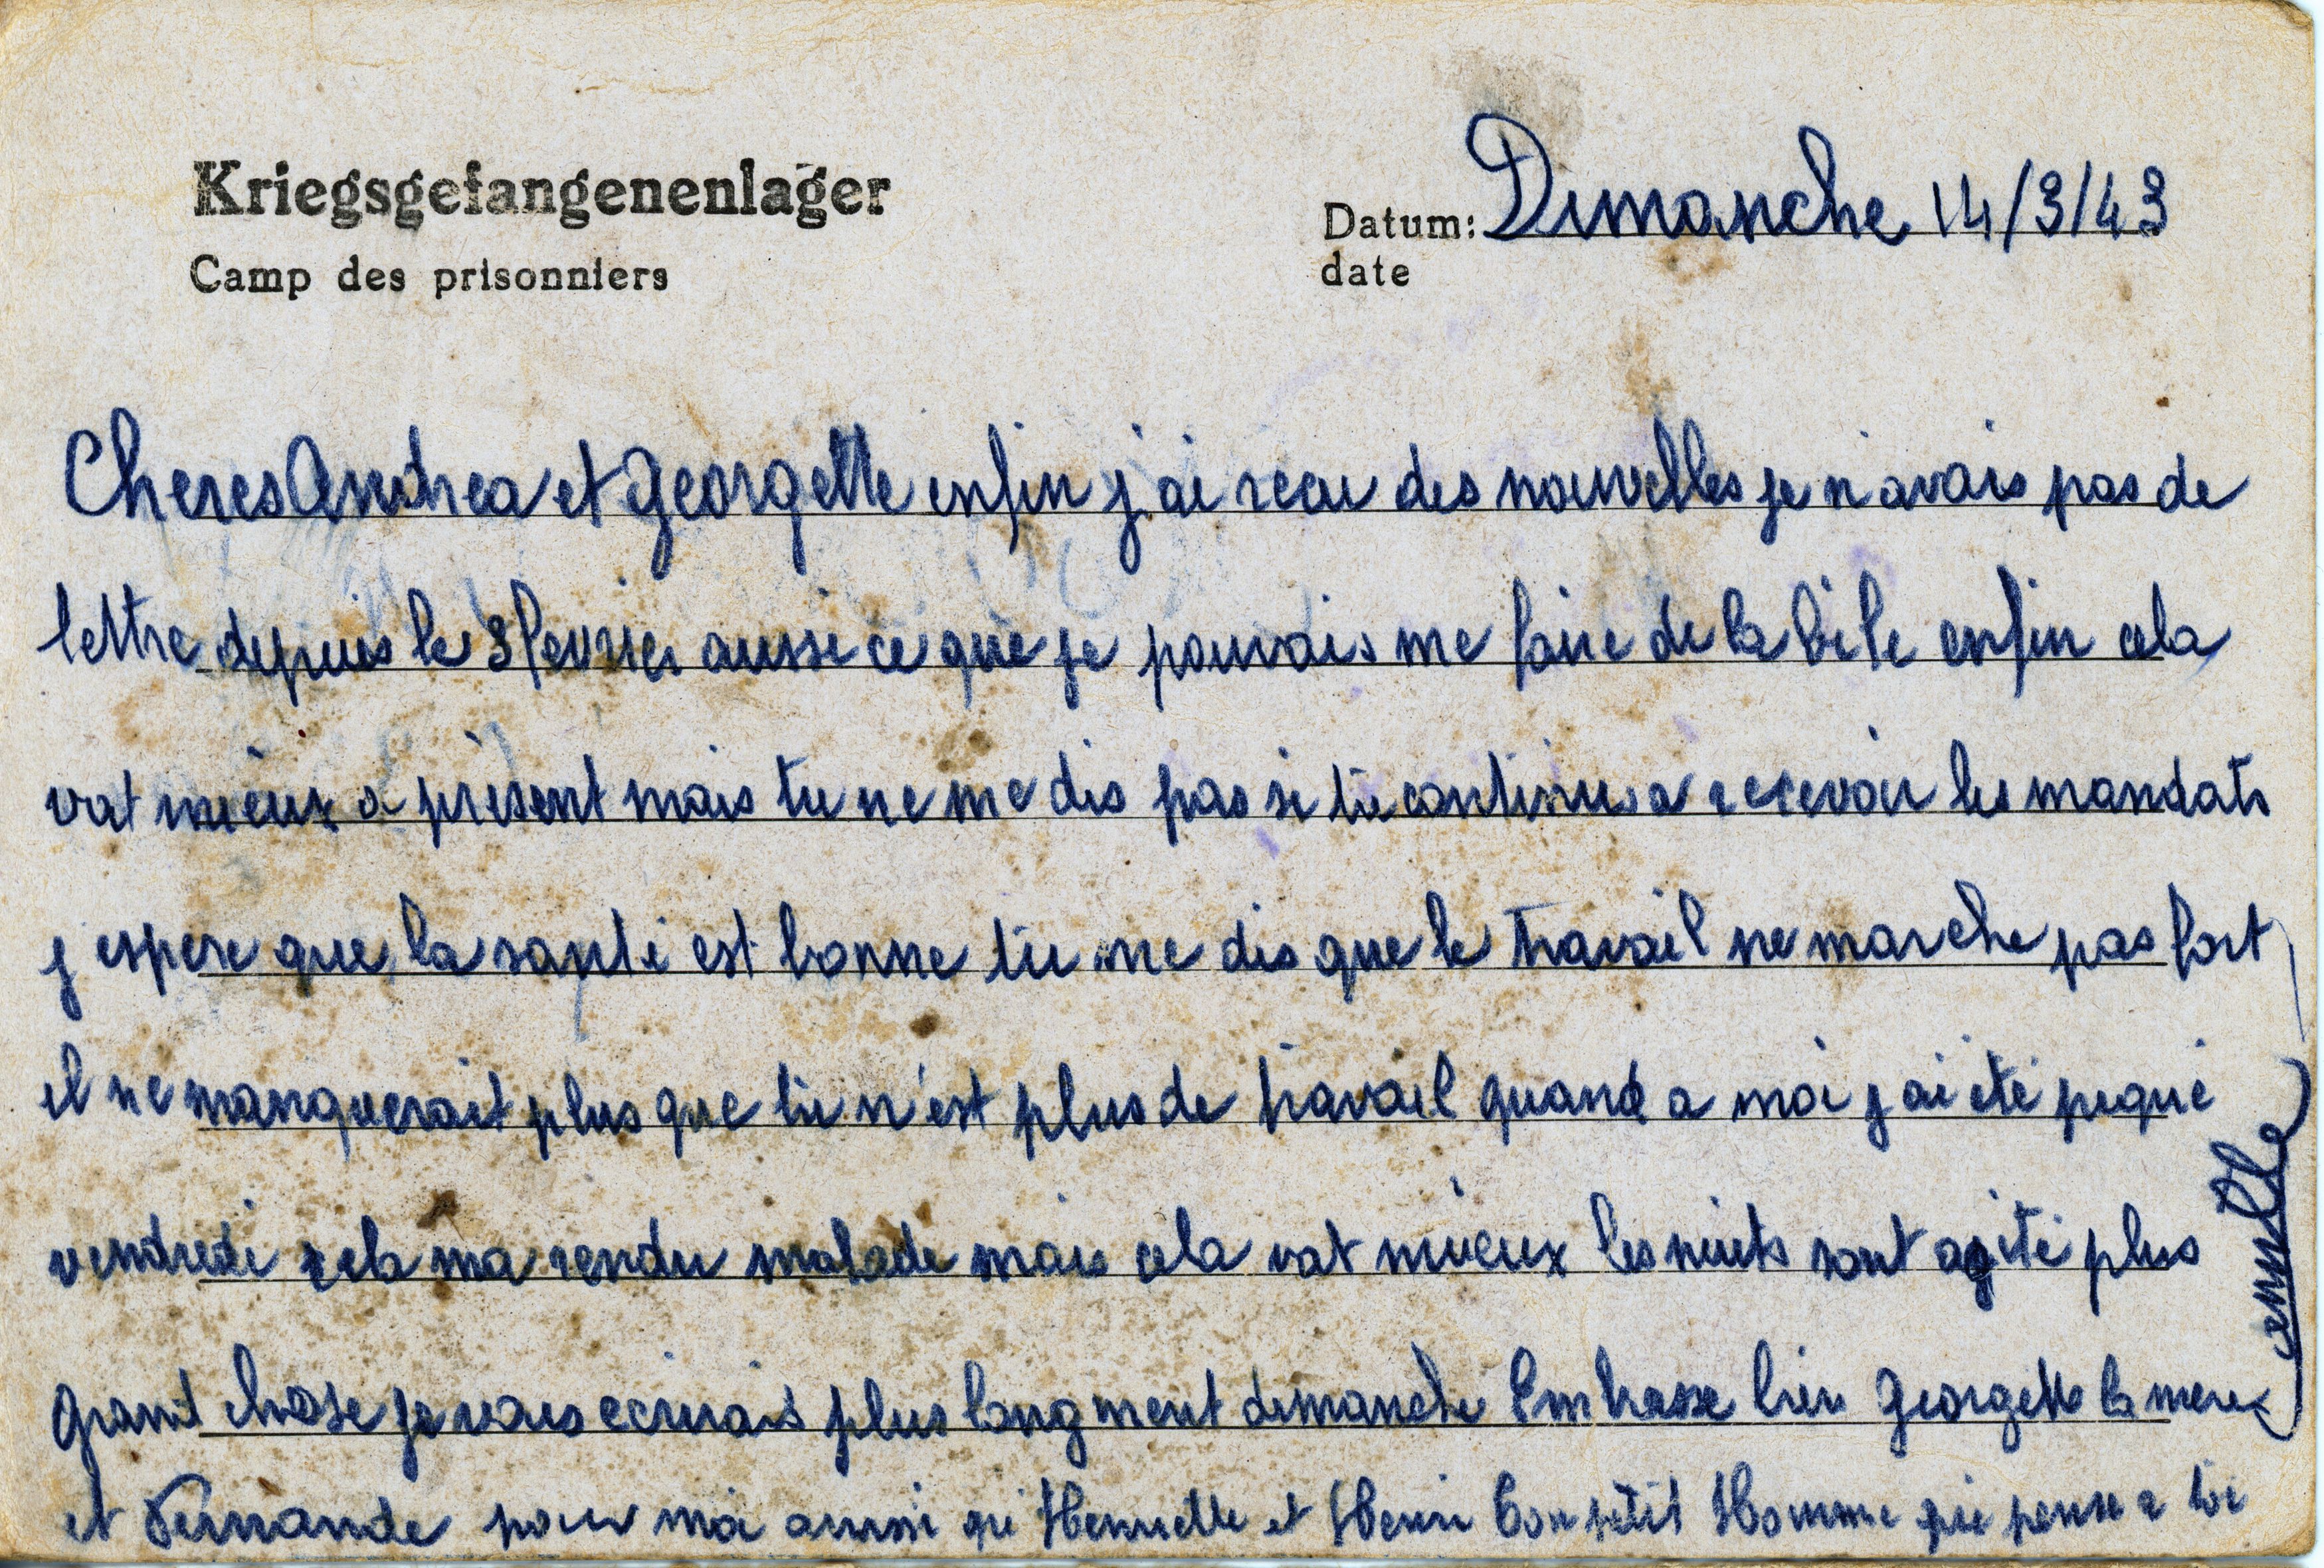 Kriegsgefangenenlager
Camp des prisonniers
Datum: Dimanche 14/3/43
date
Cheres Andrea et Georgette enfin j'ai recu des nouvelles je n'avais pas de
lettre depuis le 3 fevrier aussi ce que je pouvais me faire de la bile enfin cela
vat mieux a présent mais tu ne me dis pas si tu continus a recevoir les mandats
j'espere que la santé est bonne tu me dis que le travail ne marche pas fort
il ne manquerait plus que tu n'est plus de travail quand a moi j'ai été piqué
vendredi cela ma rendu malade mais cela vat mieux les nuits sont agité plus
grand chose je vous ecrirais plus longment dimanche Embrasse bien Georgette la mere
et Fernande pour moi aussi qi Henriette et Henri Ton petit Homme qui pense a toi